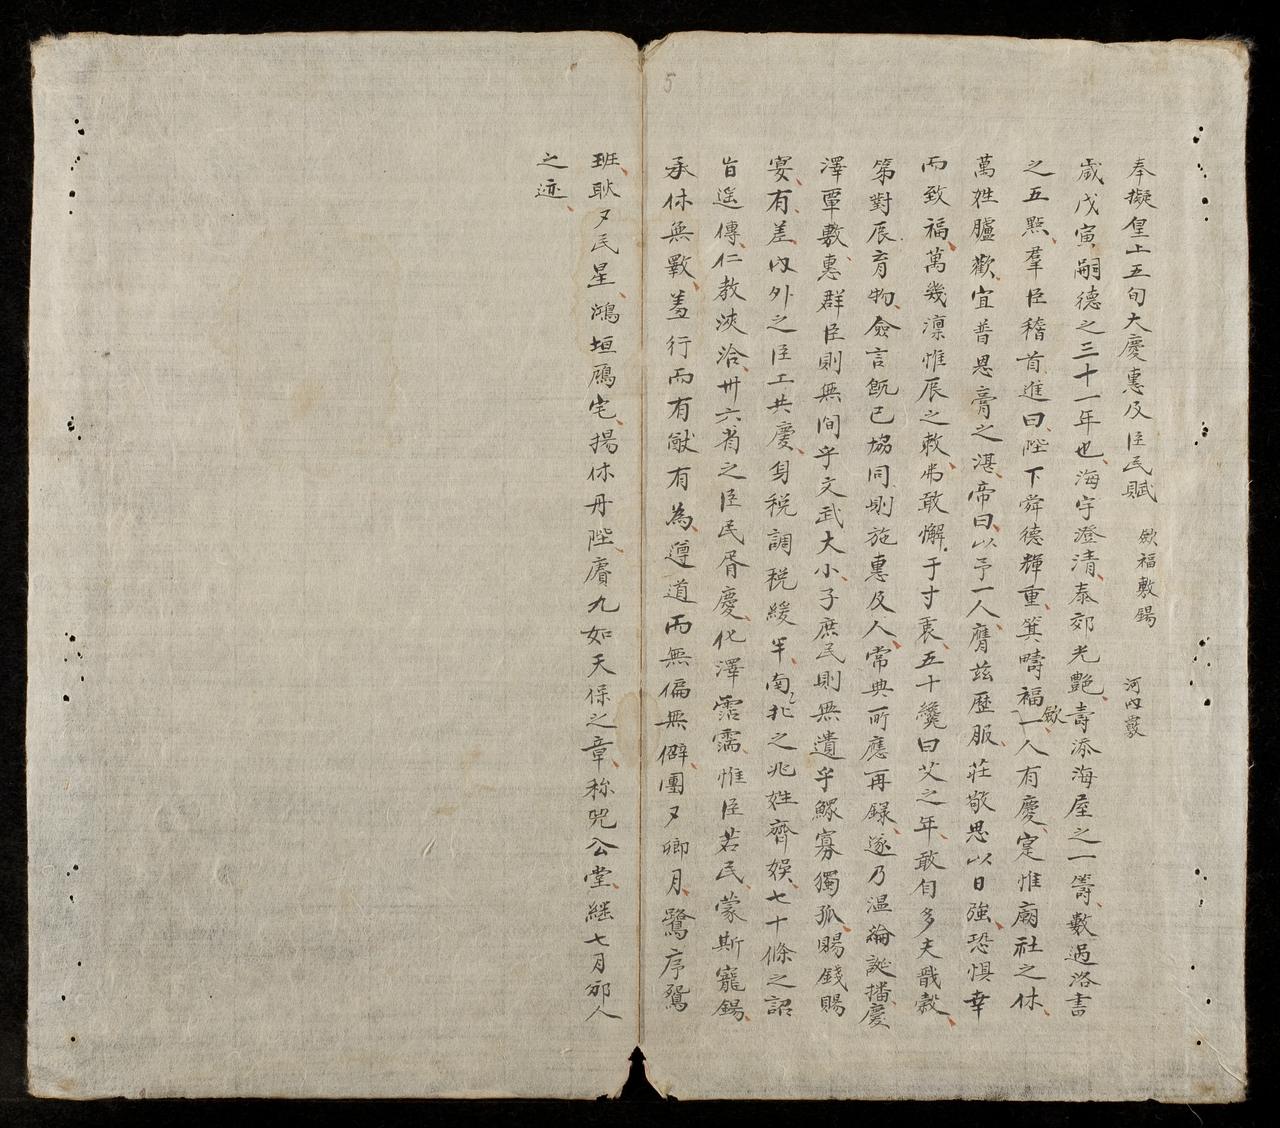 5
奉擬皇上五旬大慶惠及臣民賦 斂福敷錫 河內藂
歲戊寅嗣德之三十一年也海宇澄清泰郊光艷壽添海屋之一籌數過洛書
之五點羣臣稽首進曰陛下舜德輝重箕疇福斂一人有慶寔惟廟社之休
萬姓臚歡宜普恩膏之湛帝曰以予一人膺茲歷服莊敬思以日強恐惧幸
而致福萬幾凜惟辰之敕弗敢懈于寸衷五十纔曰艾之年敢自多夫戩穀
第對辰育物僉言旣已協同則施惠及人常典所應再錄遂乃温綸誕播慶
澤覃敷惠群臣則無間乎文武大小子庶民則無遺乎鰥寡獨孤賜錢賜
宴有差內外之臣工共慶身税調税緩半南北之兆姓齊娛七十條之詔
旨遥傳仁教浹洽卅六省之臣民胥慶化澤霑濡惟臣若民蒙斯寵錫
承休無斁羞行而有猷有為遵道而無偏無僻團夕卿月鷺序鴛
班耿夕民星鴻垣鴈宅揚休丹陛賡九如天保之章称兕公堂継七月邠人
之迹